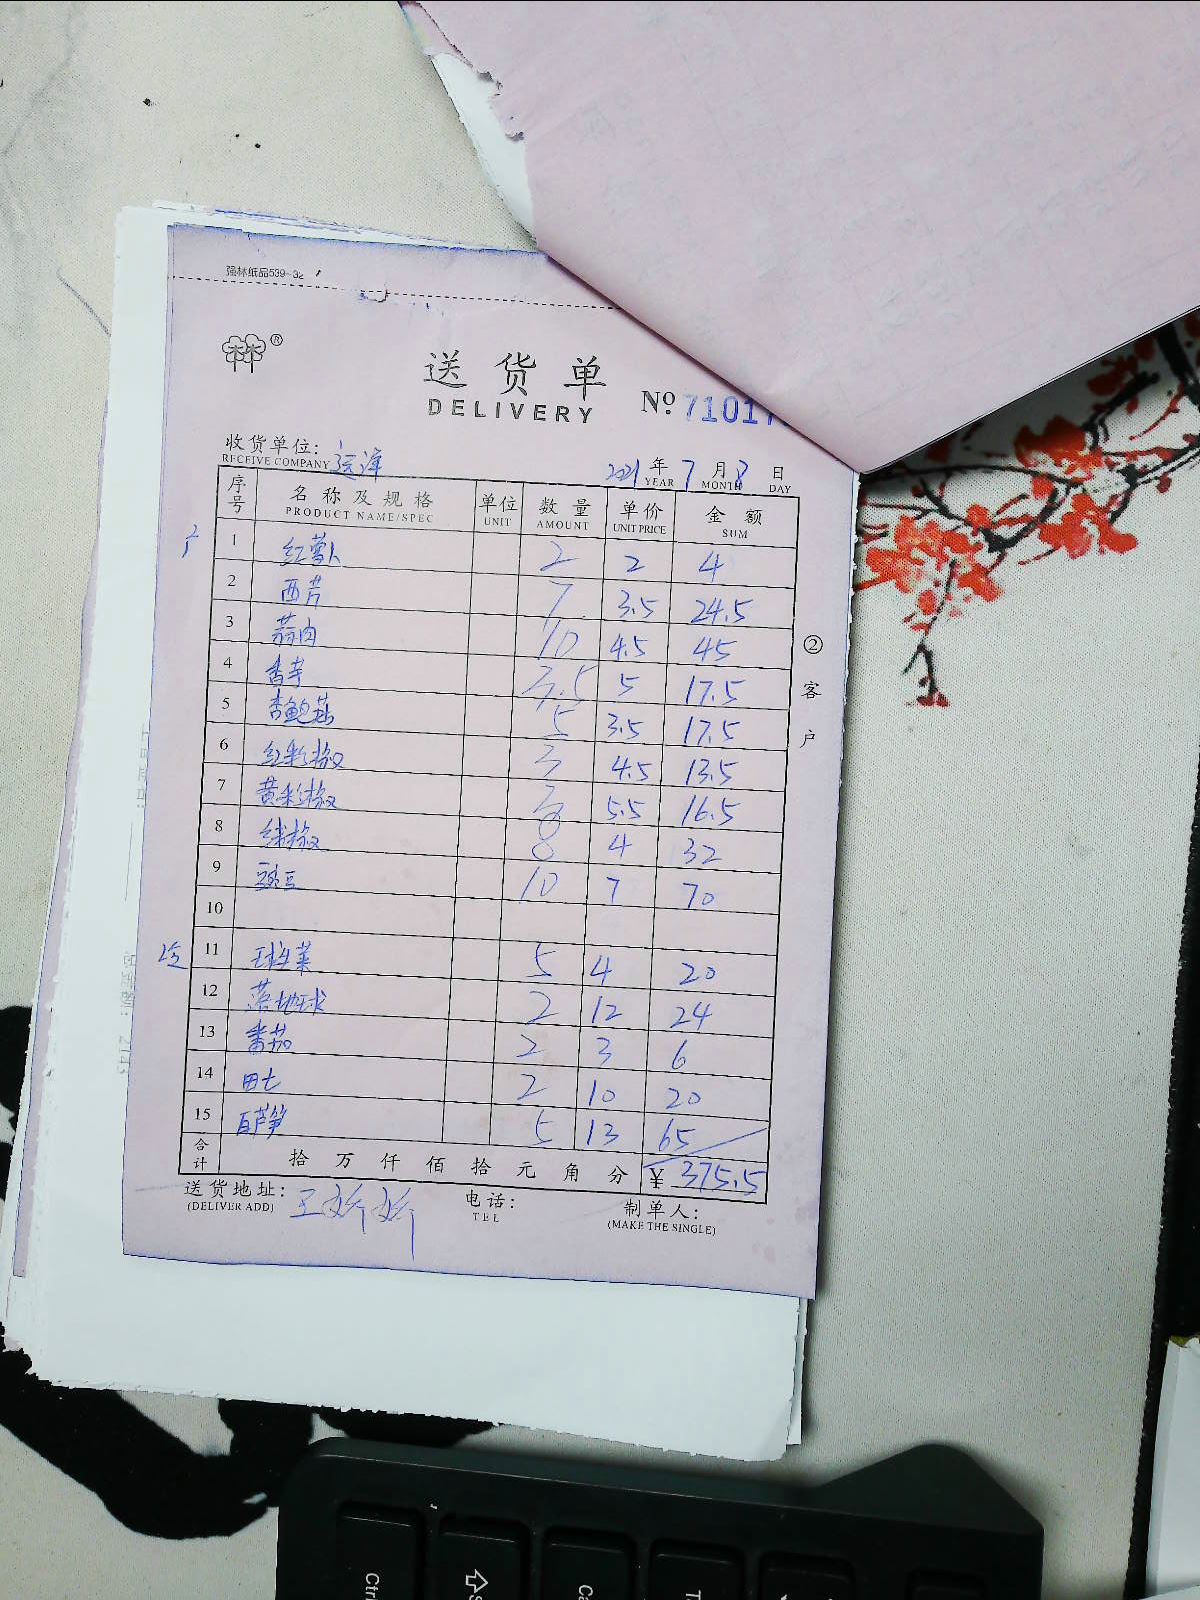 强林纸品539-32
®
送货单
DELIVERY
№ 7101
收货单位: 远洋
RECEIVE COMPANY
2021 年 7 月 8 日
YEAR MONTH DAY
序号 名称及规格 单位 数量 单价 金额
PRODUCT NAME/SPEC UNIT AMOUNT UNIT PRICE SUM
1 红萝卜 2 2 4
2 西芹 7 3.5 24.5
3 蒜肉 10 4.5 45
4 香芋 3.5 5 17.5
5 杏鲍菇 5 3.5 17.5
6 红彩椒 3 4.5 13.5
7 黄彩椒 3 5.5 16.5
8 8 4 32
9 10 7 70
10
11 球生菜 5 4 20
12 落地球 2 12 24
13 番茄 2 3 6
14 田七 2 10 20
15 百芦笋 5 13 65
合计 拾 万 仟 佰 拾 元 角 分 ¥ 375.5
送货地址: 王娇娇 电话: 制单人:
(DELIVER ADD) TEL (MAKE THE SINGLE)
② 客户
Ctr